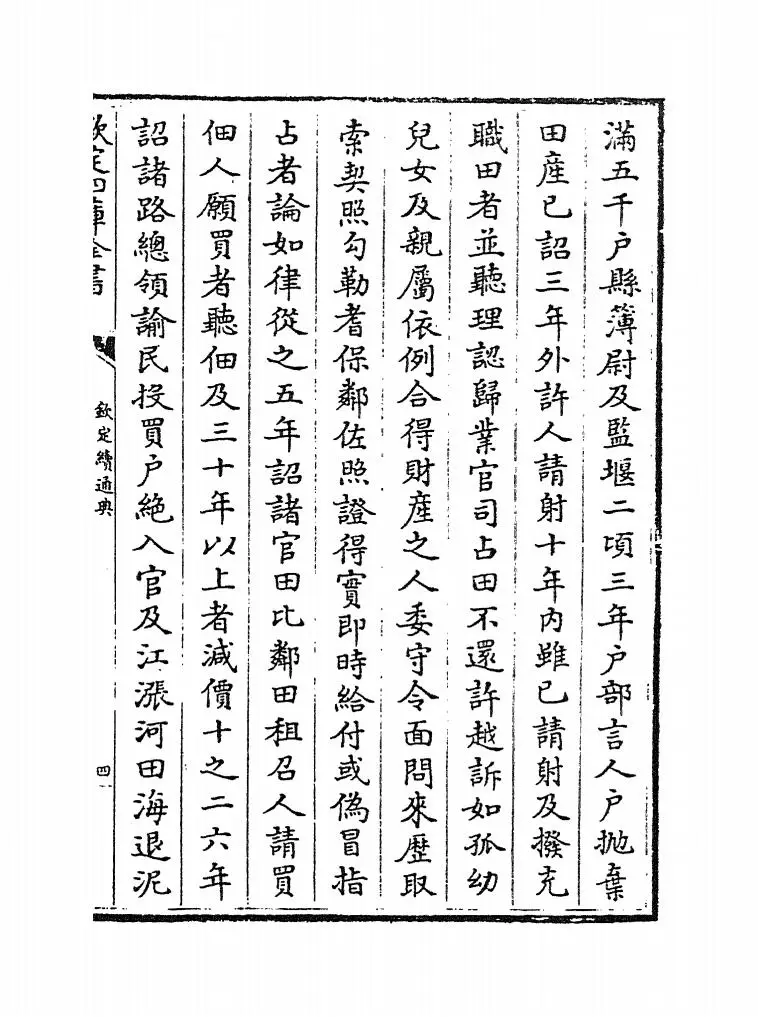 滿五千户縣簿尉及監堰二頃三年户部言人户抛棄
田產已詔三年外許人請射十年內雖已請射及撥充
職田者並聽理認歸業官司占田不還許越訴如孤幼
兒女及親屬依例合得財產之人委守令面問來歷取
索契照勾勒耆保鄰佐照證得實即時給付或偽冒指
占者論如律從之五年詔諸官田比鄰田租召人請買
佃人願買者聽佃及三十年以上者減價十之二六年
詔諸路總領諭民投買户絶入官及江漲河田海退泥
欽定四庫全書
欽定續通典
四